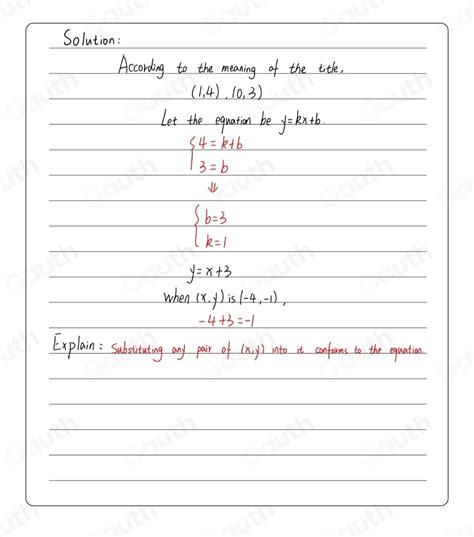 Solution:
According to the meaning of the title,
(1,4), (0,3)
Let the equation be y=kx+b.
{4=k+b
3=b
⇓
{b=3
k=1
y=x+3
when (x,y) is (-4,-1),
-4+3=-1
Explain: Substituting any pair of (x,y) into it conforms to the equation.